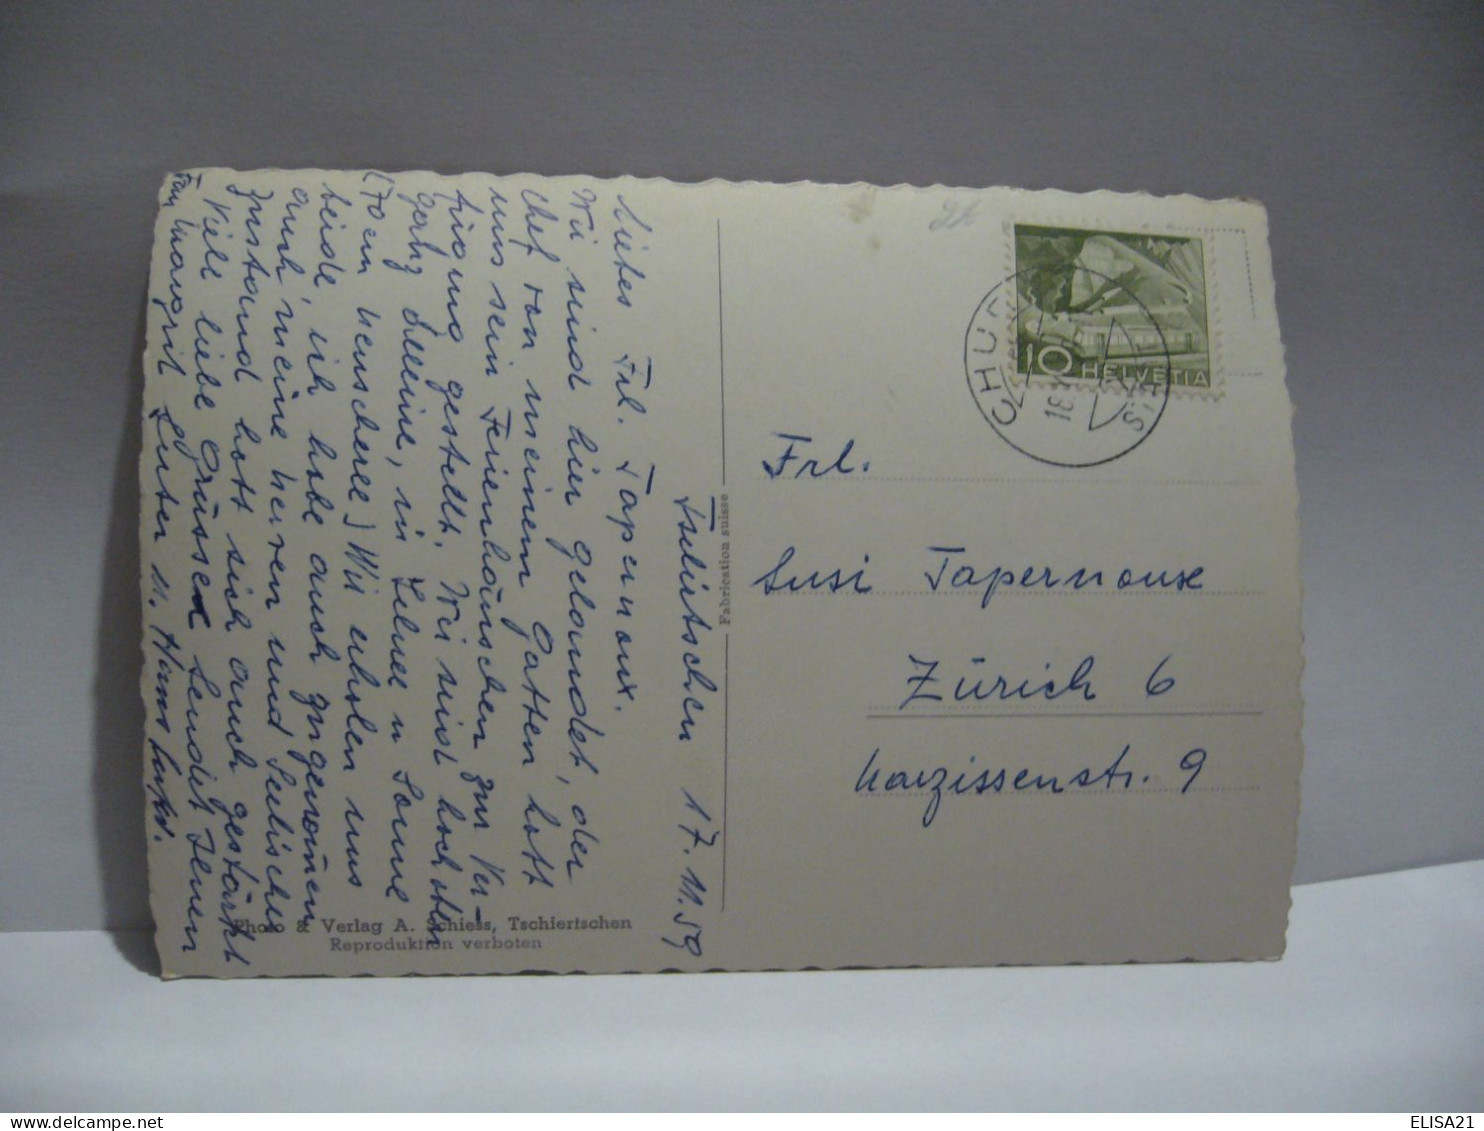 Tschiertschen 17.11.59
Liebes Frl. Tapernoux.
Wir sind hier gelandet, der
Chef von meinem Gatten hatt
uns sein Ferienhäuschen zur Ver-
fügung gestellt. Wir sind hoch oben
ganz alleine, in Schnee u Sonne
(70 cm Neuschnee) Wir erholen uns
beide, ich habe auch zugenomen
auch meine Nerven und Seelischer
Zustand hatt sich auch gestärkt
Viele liebe Grüsse sendet Ihnen
Fam Margrit Suter u. Hans
Photo & Verlag A. Schiess, Tschiertschen
Reproduktion verboten
Fabrication suisse
CHUR
18
10 HELVETIA
Frl.
Susi Tapernoux
Zürich 6
Narzissenstr. 9
ELISA21